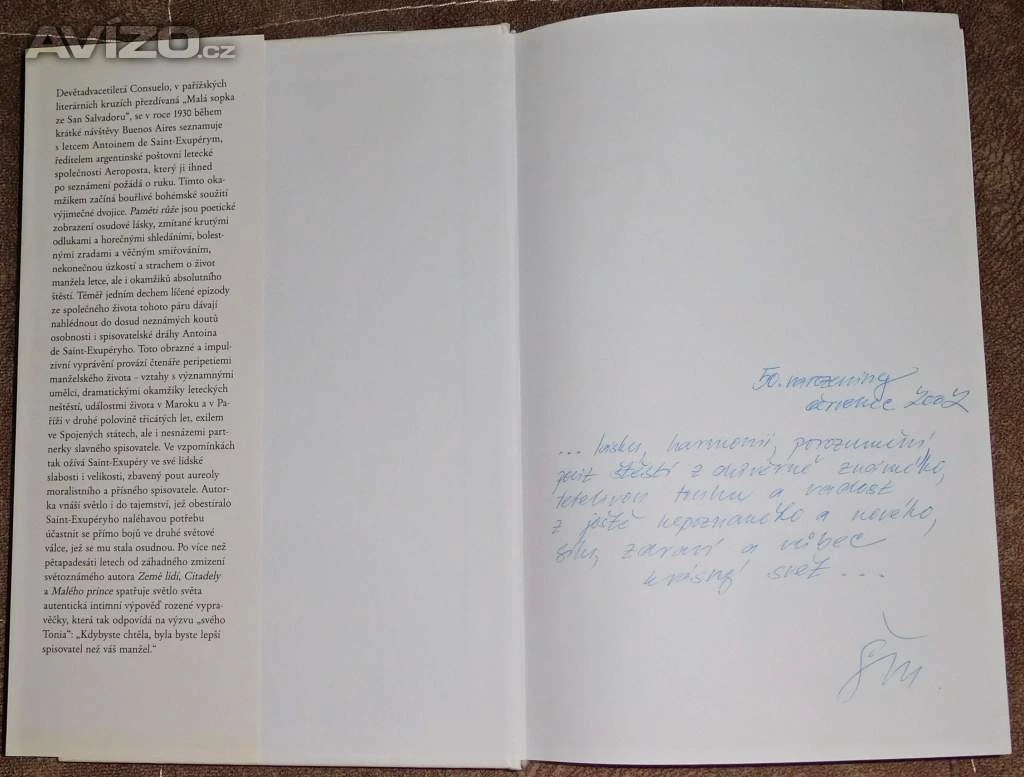 AVÍZO.cz
Devětadvacetiletá Consuelo, v pařížských
literárních kruzích přezdívaná „Malá sopka
ze San Salvadoru“, se v roce 1930 během
krátké návštěvy Buenos Aires seznamuje
s letcem Antoinem de Saint-Exupérym,
ředitelem argentinské poštovní letecké
společnosti Aeroposta, který ji ihned
po seznámení požádá o ruku. Tímto oka-
mžikem začíná bouřlivé bohémské soužití
výjimečné dvojice. Paměti růže jsou poetické
zobrazení osudové lásky, zmítané krutými
odlukami a horečnými shledáními, bolest-
nými zradami a věčným smiřováním,
nekonečnou úzkostí a strachem o život
manžela letce, ale i okamžiků absolutního
štěstí. Téměř jedním dechem líčené epizody
ze společného života tohoto páru dávají
nahlédnout do dosud neznámých koutů
osobnosti i spisovatelské dráhy Antoina
de Saint-Exupéryho. Toto obrazné a impul-
zivní vyprávění provází čtenáře peripetiemi
manželského života – vztahy s významnými
umělci, dramatickými okamžiky leteckých
neštěstí, událostmi života v Maroku a v Pa-
říži v druhé polovině třicátých let, exilem
ve Spojených státech, ale i nesnázemi part-
nerky slavného spisovatele. Ve vzpomínkách
tak ožívá Saint-Exupéry ve své lidské
slabosti i velikosti, zbavený pout aureoly
moralistního a přísného spisovatele. Autor-
ka vnáší světlo i do tajemství, jež obestíralo
Saint-Exupéryho naléhavou potřebu
účastnit se přímo bojů ve druhé světové
válce, jež se mu stala osudnou. Po více než
pětapadesáti letech od záhadného zmizení
světoznámého autora Země lidí, Citadely
a Malého prince spatřuje světlo světa
autentická intimní výpověď rozené vypra-
věčky, která tak odpovídá na výzvu „svého
Tonia“: „Kdybyste chtěla, byla byste lepší
spisovatel než váš manžel.“
50. narozeniny
červenec 2002
... lásku, harmonii, porozumění
pocit štěstí z důvěrně známého,
touhu a radost
z ještě nepoznaného a nového,
sílu, zdraví a vůbec
krásný svět ...